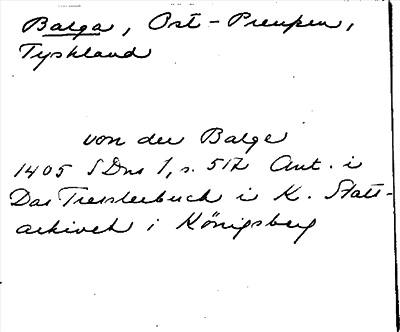 Balga, Ost-Preuszen,
Tyskland
von der Balge
1405 SDns 1, s. 517 Ant. i
Das Tresslerbuch i K. Stats-
arkivet i Königsberg